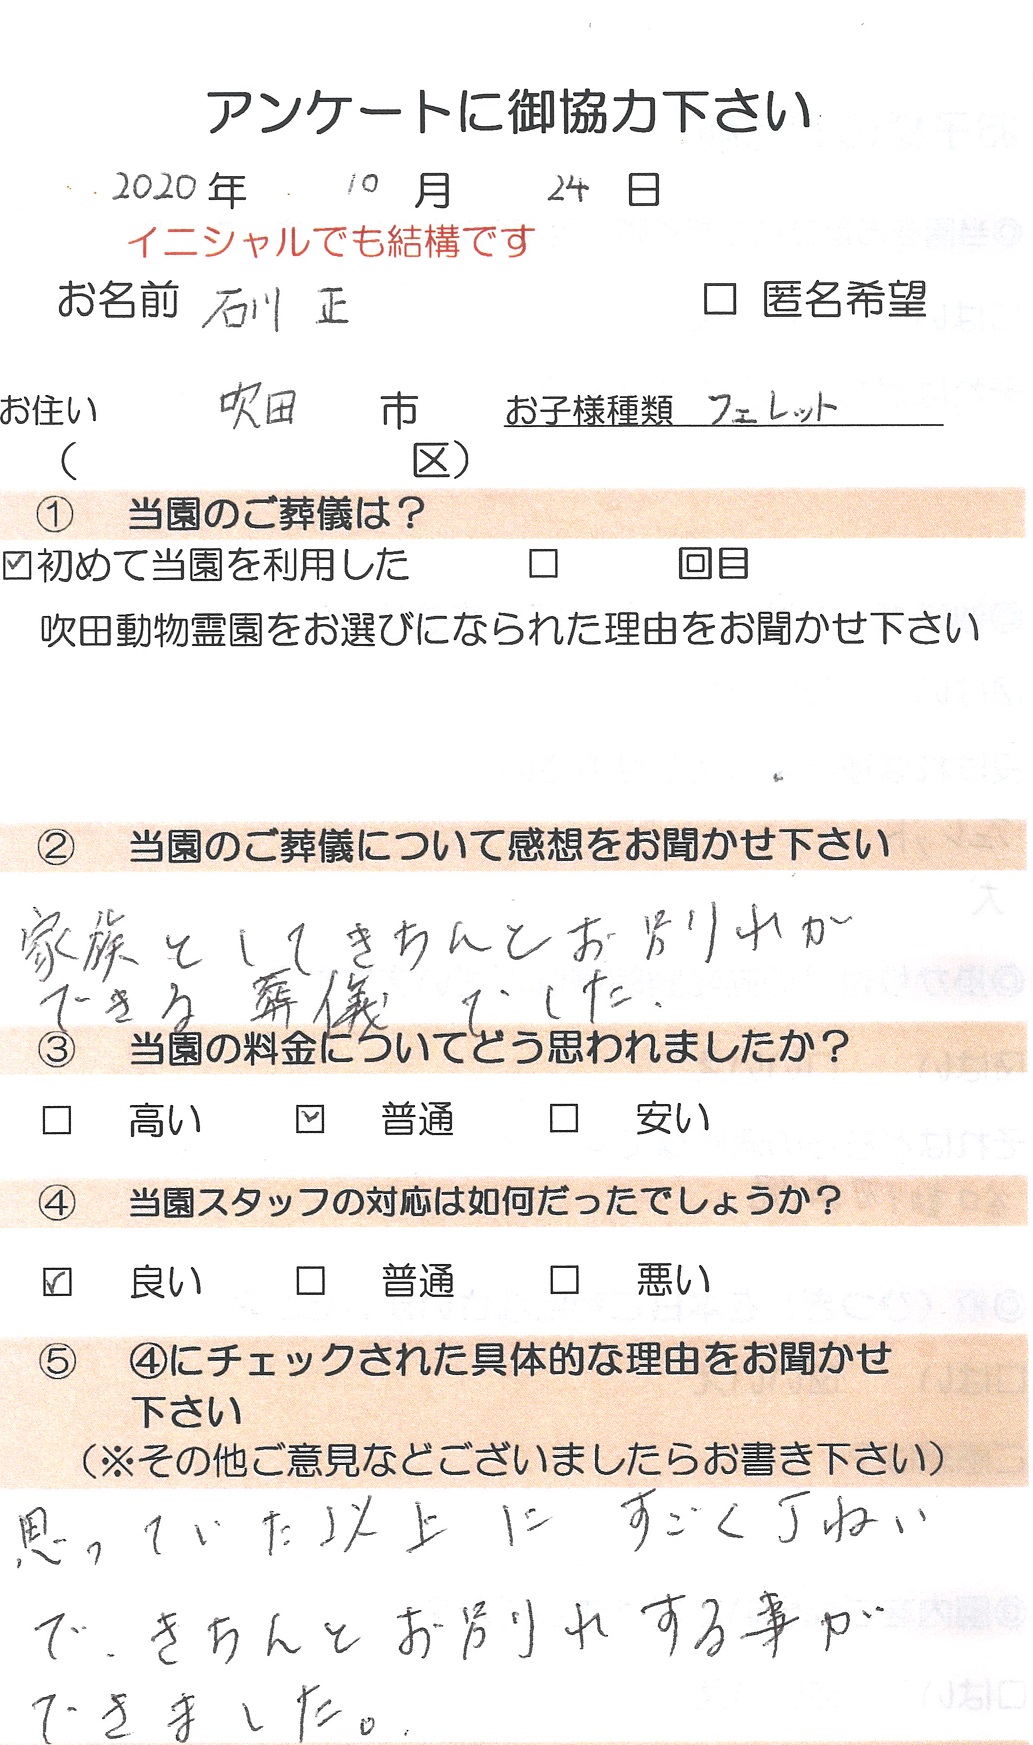 アンケートに御協力下さい
2020 年 10 月 24 日
イニシャルでも結構です
お名前 石川 正 □ 匿名希望
お住い 吹田 市 お子様種類 フェレット
( 区)
① 当園のご葬儀は？
☑初めて当園を利用した □ 回目
吹田動物霊園をお選びになられた理由をお聞かせ下さい
② 当園のご葬儀について感想をお聞かせ下さい
家族としてきちんとお別れが
できる葬儀でした.
③ 当園の料金についてどう思われましたか？
□ 高い ☑ 普通 □ 安い
④ 当園スタッフの対応は如何だったでしょうか？
☑ 良い □ 普通 □ 悪い
⑤ ④にチェックされた具体的な理由をお聞かせ
下さい
（※その他ご意見などございましたらお書き下さい）
思っていた以上に すごく丁ねい
で、きちんとお別れする事が
できました。